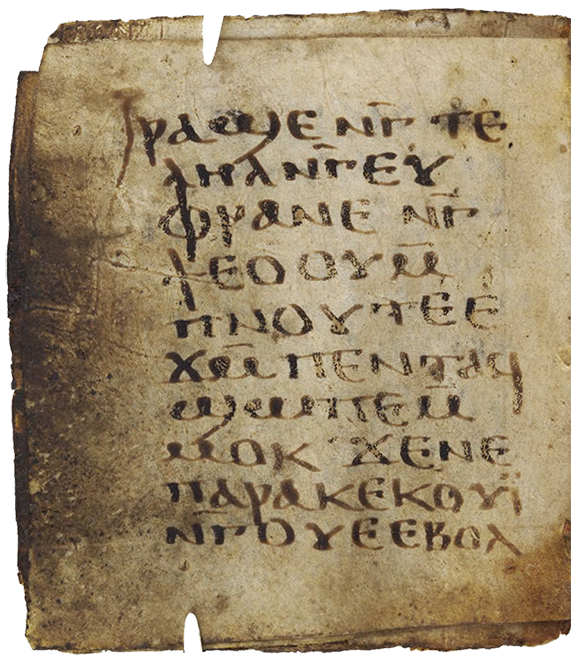 ⲣⲁϣⲉ ⲛⲅ̄ ⲧⲉ
ⲗⲏⲗ ⲛⲅ̄ⲉⲩ
ⲫⲣⲁⲛⲉ ⲛⲅ̄
ϯⲉⲟⲟⲩ ⲙ̄
ⲡⲛⲟⲩⲧⲉ ⲉ
ϫⲙ̄ ⲡⲉⲛⲧⲁϥ
ϣⲱⲡⲉ ⲙ̄
ⲙⲟⲕ ϫⲉ ⲛⲉ
ⲡⲁⲣⲁ ⲕⲉⲕⲟⲩⲓ̈
ⲛⲅ̄ⲟⲩⲉ ⲉⲃⲟⲗ